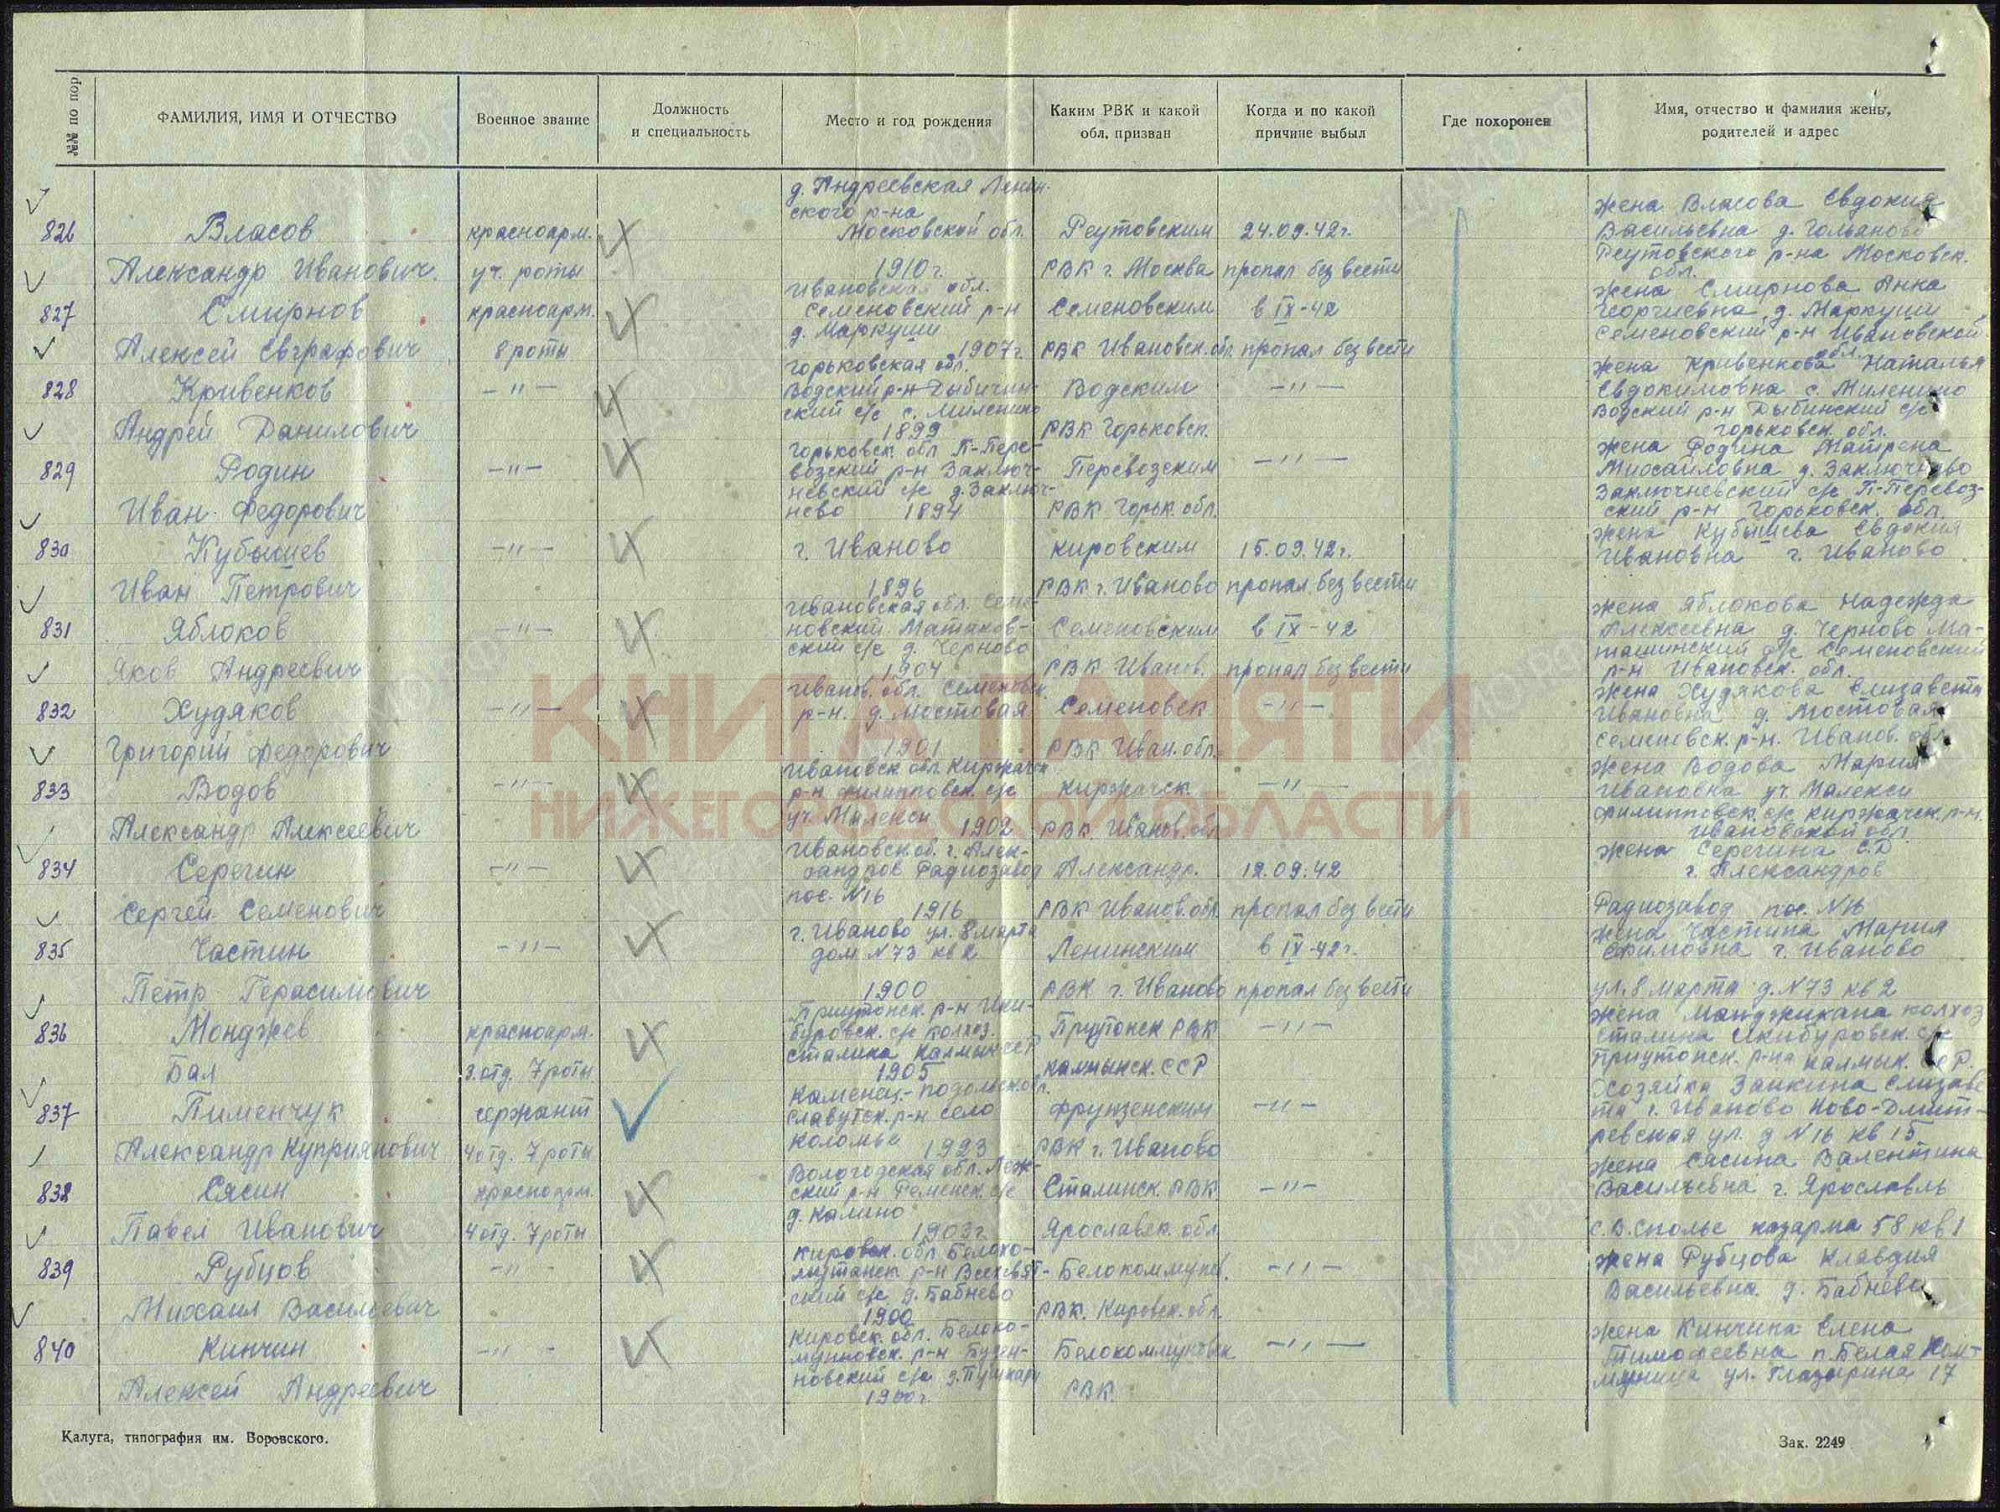 №№ по пор
ФАМИЛИЯ, ИМЯ И ОТЧЕСТВО
Военное звание
Должность
и специальность
Место и год рождения
Каким РВК и какой
обл. призван
Когда и по какой
причине выбыл
Где похоронен
Имя, отчество и фамилия жены,
родителей и адрес
826
Власов
Александр Иванович.
красноарм.
уч. роты
д. Андреевская Ленин-
ского р-на
Московской обл.
1910 г.
Реутовским
РВК г. Москва
24.09.42 г.
пропал без вести
жена Власова Евдокия
Васильевна д. Гольяново
Реутовского р-на Московск.
обл.
827
Смирнов
Алексей Евграфович
красноарм.
8 роты
Ивановская обл.
Семеновский р-н
д. Маркуши
1907 г.
Семеновским
РВК Ивановск. обл.
в IX-42
пропал без вести
жена Смирнова Анна
Георгиевна д. Маркуши
Семеновский р-н Ивановской
обл.
828
Кривенков
Андрей Данилович
-"-
Горьковская обл.
Водский р-н Дыбичин-
ский с/с с. Миленино
1899
Водским
РВК Горьковск.
-"-
жена Кривенкова Наталья
Евдокимовна с. Миленино
Водский р-н Дыбинский с/с
Горьковск. обл.
829
Родин
Иван Федорович
-"-
Горьковск. обл П-Пере-
возский р-н Заключ-
невский с/с д. Заключ-
нево 1894
Перевозским
РВК Горьк. обл.
-"-
жена Родина Матрена
Михайловна д. Заключнево
Заключневский с/с П-Перевоз-
ский р-н Горьковск. обл.
830
Кубышев
Иван Петрович
-"-
г. Иваново
1896
Кировским
РВК г. Иваново
15.09.42 г.
пропал без вести
жена Кубышева Евдокия
Ивановна г. Иваново
831
Яблоков
Яков Андреевич
-"-
Ивановская обл. Семе-
новский Матаков-
ский с/с д. Черново
1904
Семеновским
РВК Иванов.
в IX-42
пропал без вести
жена Яблокова Надежда
Алексеевна д. Черново Ма-
ташинский с/с Семеновский
р-н Ивановск. обл.
832
Худяков
Григорий Федорович
-"-
Иванов. обл. Семеновск.
р-н. д. Мостовая
1901
Семеновск
РВК Иван. обл.
-"-
жена Худякова Елизавета
Ивановна д. Мостовая
Семеновск. р-н. Иванов. обл
833
Водов
Александр Алексеевич
-"-
Ивановск обл. Киржачск
р-н Филипповск. с/с
уч. Малекси 1902
Киржачск.
РВК Иванов. обл
-"-
жена Водова Мария
Ивановна уч. Малекси
Филипповск. с/с Киржачск. р-н.
Ивановской обл
834
Серегин
Сергей Семенович
-"-
Ивановск. об. г. Алек-
сандров Радиозавод
пос. N16
1916
Александр.
РВК Иванов. обл
12.09.42
пропал без вести
жена Серегина С.Д
г. Александров
Радиозавод пос. N16
835
Частин
Петр Герасимович
-"-
г. Иваново ул. 8 марта
дом N 73 кв 2
1900
Ленинским
РВК г. Иваново
в IX-42 г.
пропал без вести
жена Частина Мария
Ефимовна г. Иваново
ул. 8 Марта д. N 73 кв 2
836
Монджев
Бал
красноарм.
3 отд. 7 роты
Приютонск. р-н Ики-
буровск. с/с колхоз.
Сталина Калмыкск ССР
1905
Приютонск РВК
калмынск. ССР
-"-
жена Манджикана колхоз
Сталина Икибуровск. с/с
Приютонск. р-на Калмык. ССР.
837
Пименчук
Александр Куприянович
сержант
4 отд. 7 роты
Каменец-Подольской об.
Славутск. р-н село
Коломье 1923
Фрунзенским
РВК г. Иваново
-"-
Хозяйка Заикина Елизаве
та г. Иваново Ново-Дмит-
ревская ул. д N 16 кв 15
838
Сясин
Павел Иванович
красноарм.
4 отд. 7 роты
Вологодская обл. Леж-
ский р-н Семенск. с/с
д. Калино
1903 г.
Сталинск. РВК
Ярославск. обл
-"-
жена Сясина Валентина
Васильевна г. Ярославль
с. В. Сполье казарма 58 кв 1
839
Рубцов
Михаил Васильевич
-"-
Кировск. обл. Белохо-
мутанск р-н Всехсвят-
ский с/с д. Бабнево
1900
Белокоммунов.
РВК. Кировск. обл
-"-
жена Рубцова Клавдия
Васильевна д. Бабнево
840
Кинчин
Алексей Андреевич
-"-
Кировск. обл. Белоко-
муновск. р-н Буген-
новский с/с д. Пушкари
1900 г.
Белокоммуновск
РВК.
-"-
жена Кинчина Елена
Тимофеевна п. Белая Ком-
муница ул. Глазырина 17
КНИГА ПАМЯТИ
НИЖЕГОРОДСКОЙ ОБЛАСТИ
Калуга, типография им. Воровского.
Зак. 2249